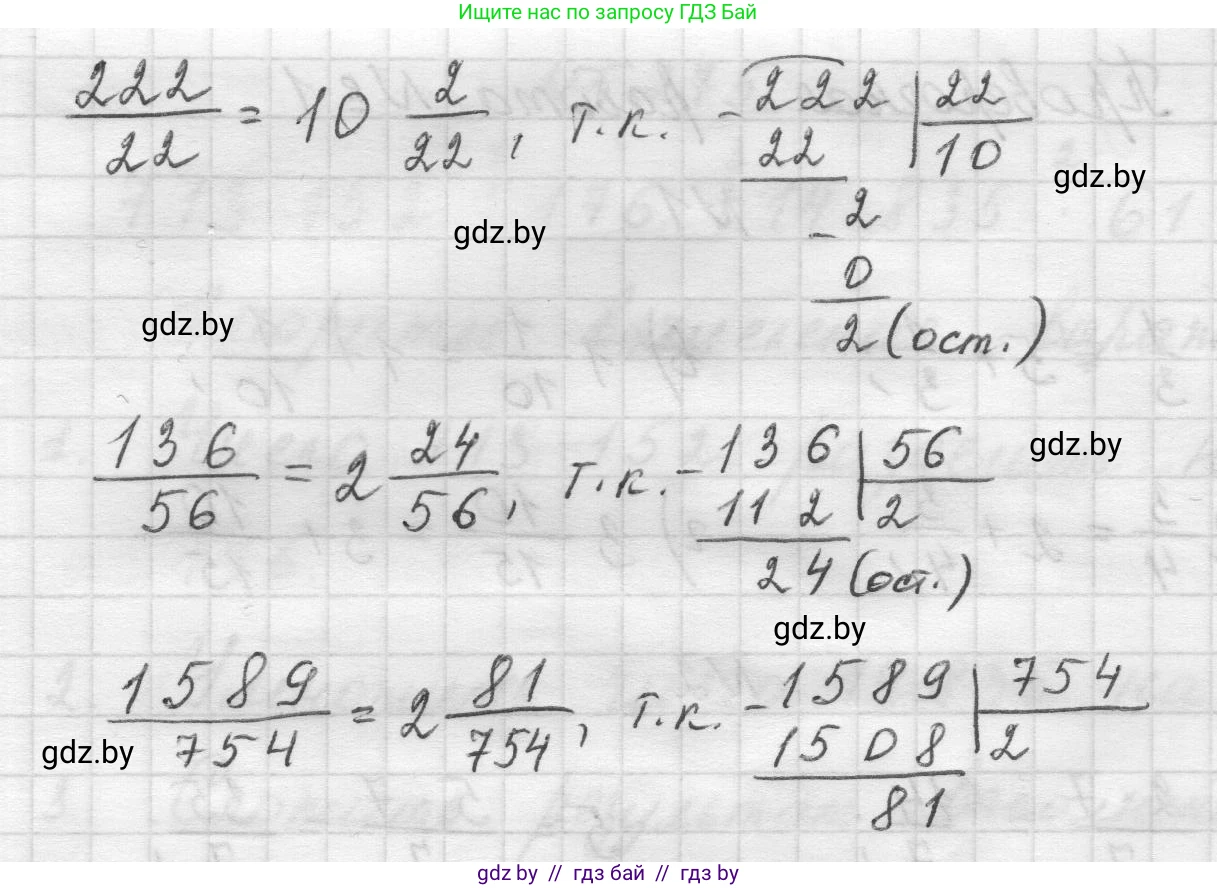 Ищите нас по запросу ГДЗ Бай
222/22 = 10 2/22, т.к. - 222 | 22
22 10
gdz.by
2
gdz.by
- 0
gdz.by
2 (ост.)
136/56 = 2 24/56, т.к. - 136 | 56
gdz.by
112 2
24 (ост.)
gdz.by
1589/754 = 2 81/754, т.к. - 1589 | 754
gdz.by
1508 2
81
gdz.by // гдз бай // гдз by